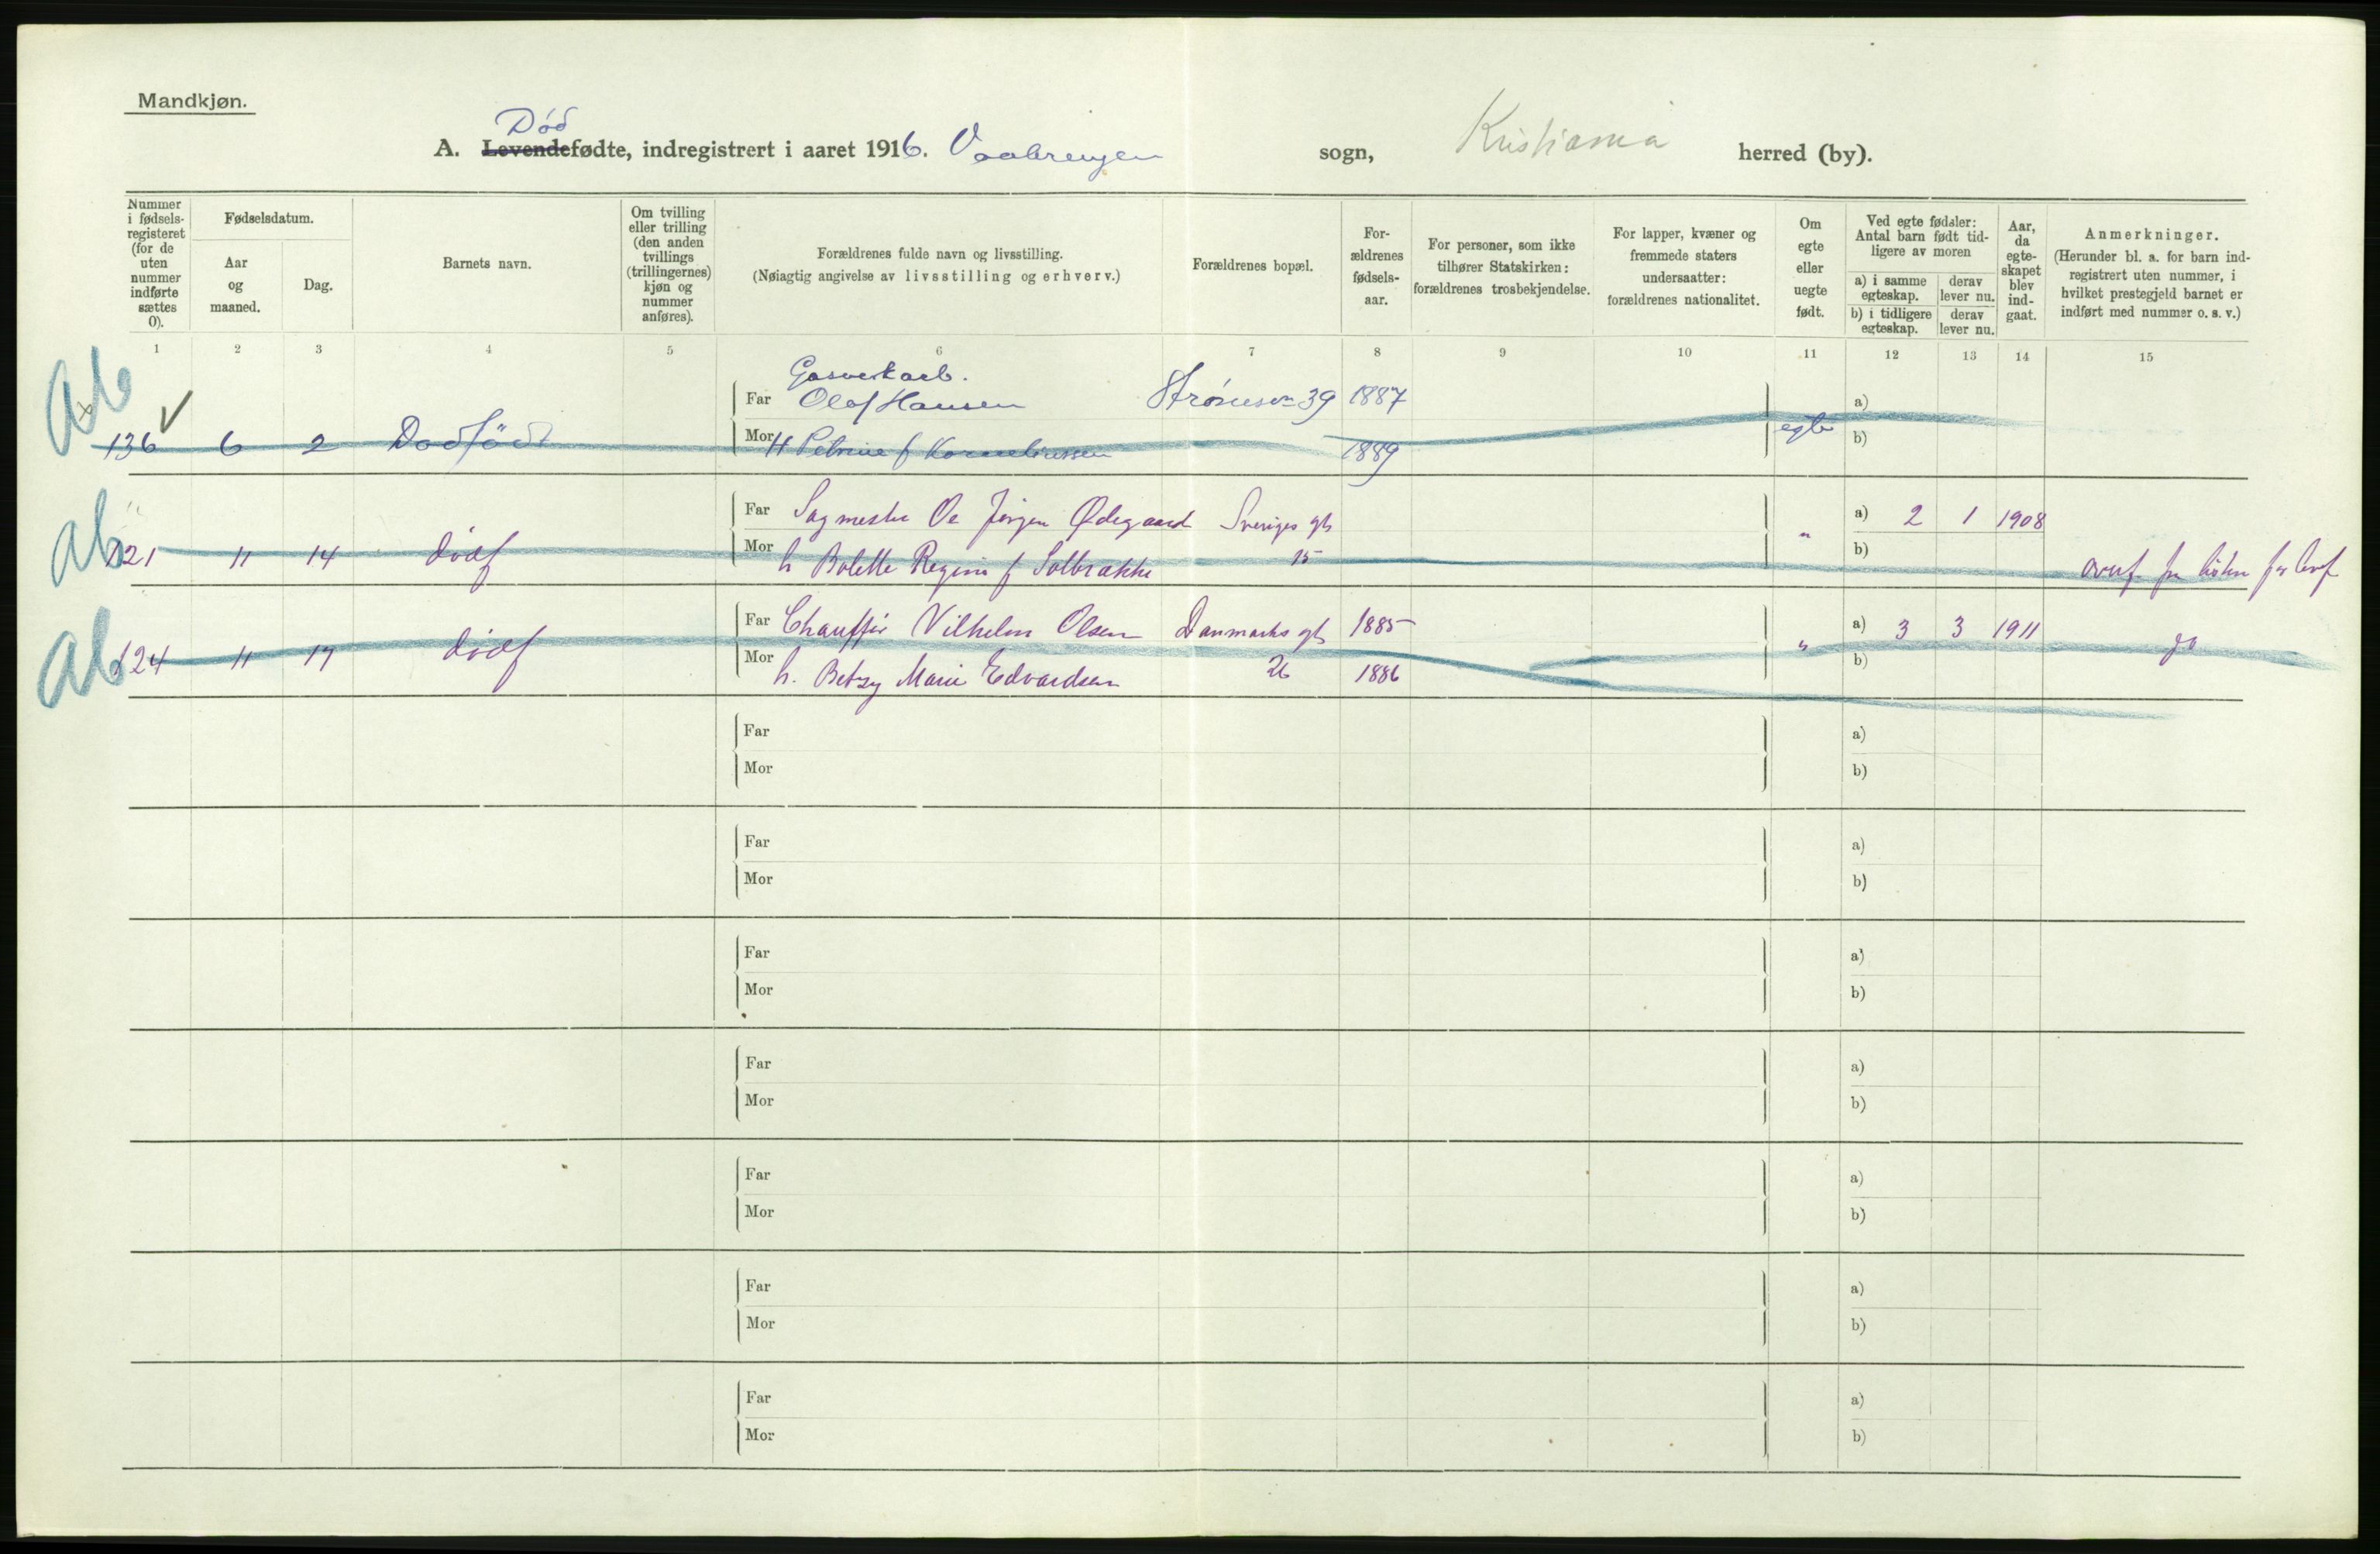 Mandkjøn.
Død
A. Levendefødte, indregistrert i aaret 1916. Vaalerengen sogn, Kristiania herred (by).
Nummer i fødsels-registeret (for de uten nummer indførte sættes 0).
Fødselsdatum.
Aar og maaned.
Dag.
Barnets navn.
Om tvilling eller trilling (den anden tvillings (trillingernes) kjøn og nummer anføres).
Forældrenes fulde navn og livsstilling.
(Nøiagtig angivelse av livsstilling og erhverv.)
Forældrenes bopæl.
For-ældrenes fødsels-aar.
For personer, som ikke tilhører Statskirken: forældrenes trosbekjendelse.
For lapper, kvæner og fremmede staters undersaatter: forældrenes nationalitet.
Om egte eller uegte født.
Ved egte fødsler: Antal barn født tid-ligere av moren
a) i samme egteskap.
derav lever nu.
b) i tidligere egteskap.
derav lever nu.
Aar, da egte-skapet blev ind-gaat.
Anmerkninger.
(Herunder bl. a. for barn ind-registrert uten nummer, i hvilket prestegjeld barnet er indført med nummer o. s. v.)
1 2 3 4 5 6 7 8 9 10 11 12 13 14 15
Ab
Gasverkarb.
Far Olaf Hansen Strømsvn 39 1887 a)
136 6 2 Dødfødt Mor H Petrine f Korneliussen 1889 egte b)
Ab
Far Sagmester Ole Jørgen Ødegaard Sveriges gt a) 2 1 1908
121 11 14 dødf Mor h Bolette Regine f Solbrække 15 " b) overf. fra listen for levf
Ab
Far Chauffør Vilhelm Olsen Danmarks gt 1885 a) 3 3 1911
124 11 17 dødf Mor h. Betzy Marie Edvardsen 26 1886 " b) do
Far a)
Mor b)
Far a)
Mor b)
Far a)
Mor b)
Far a)
Mor b)
Far a)
Mor b)
Far a)
Mor b)
Far a)
Mor b)